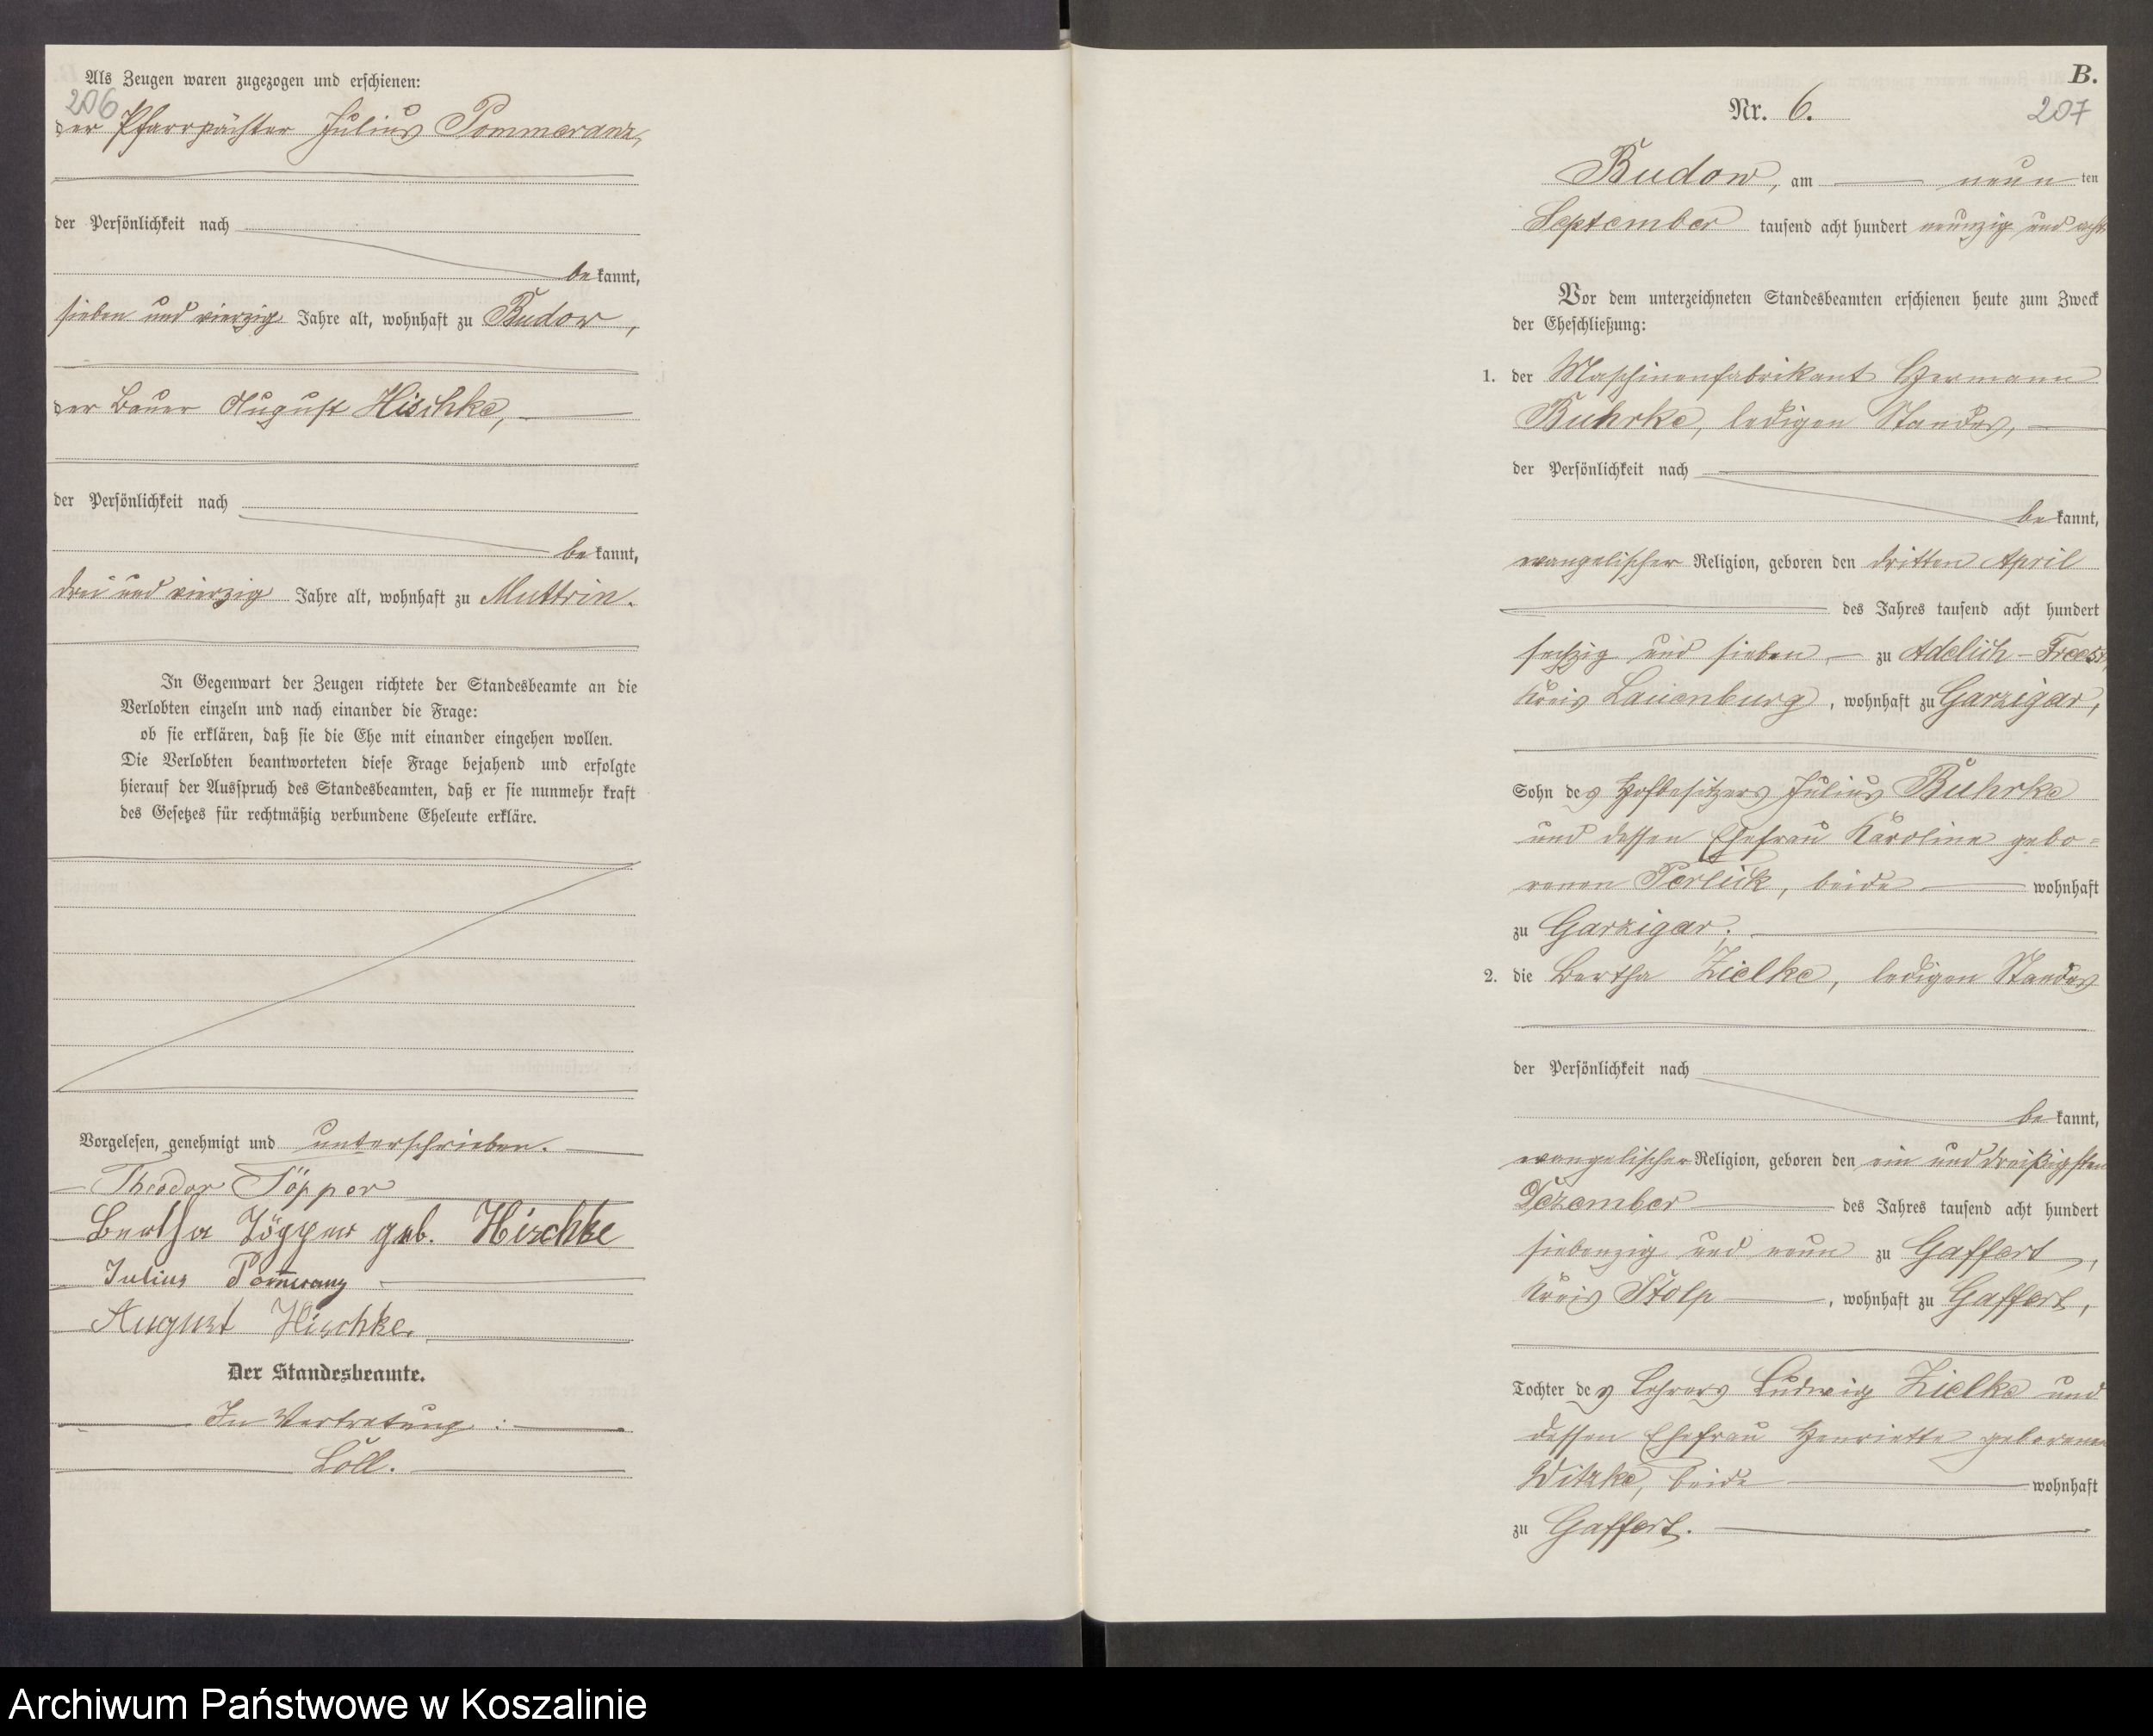 Als Zeugen waren zugezogen und erschienen:
206
der Pfarrpächter Julius Pommeranz,
der Persönlichkeit nach
bekannt,
sieben und vierzig Jahre alt, wohnhaft zu Budow,
der Bauer August Hischke,
der Persönlichkeit nach
bekannt,
drei und vierzig Jahre alt, wohnhaft zu Muttrin.
In Gegenwart der Zeugen richtete der Standesbeamte an die
Verlobten einzeln und nach einander die Frage:
ob sie erklären, daß sie die Ehe mit einander eingehen wollen.
Die Verlobten beantworteten diese Frage bejahend und erfolgte
hierauf der Ausspruch des Standesbeamten, daß er sie nunmehr kraft
des Gesetzes für rechtmäßig verbundene Eheleute erkläre.
Vorgelesen, genehmigt und unterschrieben.
Theodor Töpper
Bertha Töpper geb. Hischke
Julius Pom̅eranz
August Hischke.
Der Standesbeamte.
In Vertretung:
Löll.
B.
Nr. 6.
207
Budow, am neun ten
September tausend acht hundert neunzig und acht
Vor dem unterzeichneten Standesbeamten erschienen heute zum Zweck
der Eheschließung:
1. der Maschinenfabrikant Hermann
Buhrke, ledigen Standes,
der Persönlichkeit nach
bekannt,
evangelischer Religion, geboren den dritten April
des Jahres tausend acht hundert
sechzig und sieben zu Adelich-Freest,
Kreis Lauenburg, wohnhaft zu Garzigar,
Sohn des Hofbesitzers Julius Buhrke
und dessen Ehefrau Karoline gebo-
renen Perlick, beide wohnhaft
zu Garzigar.
2. die Bertha Zielke, ledigen Standes
der Persönlichkeit nach
bekannt,
evangelischer Religion, geboren den ein und dreißigsten
Dezember des Jahres tausend acht hundert
siebenzig und neun zu Gaffert,
Kreis Stolp, wohnhaft zu Gaffert,
Tochter des Lehrers Ludwig Zielke und
dessen Ehefrau Henriette geborenen
Witzke, beide wohnhaft
zu Gaffert.
Archiwum Państwowe w Koszalinie